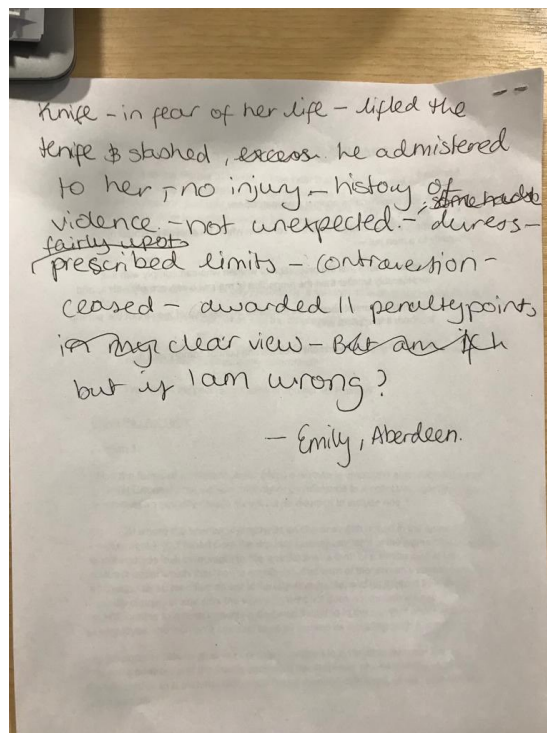 Knife - in fear of her life - lifted the
knife & slashed, excess. he admistered
to her, - no injury - history of
violence. - not unexpected. - duress -
fairly upset
prescribed limits - contravension -
ceased - awarded 11 penalty points
in my clear view - But am I
but if I am wrong?
- Emily, Aberdeen.